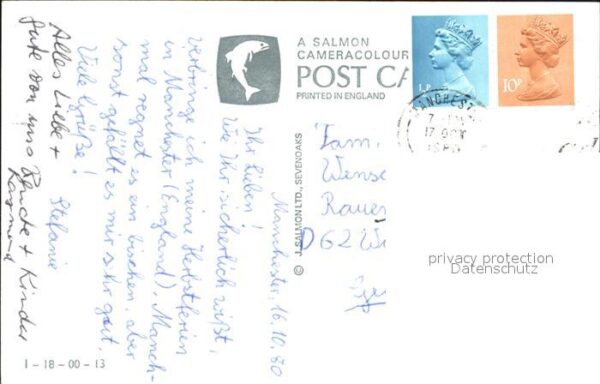 A SALMON
CAMERACOLOUR
POST CA
PRINTED IN ENGLAND
½P
10P
MANCHEST
17 OCT
© J. SALMON LTD., SEVENOAKS
Manchester, 16.10.80
Ihr Lieben!
Wie Ihr sicherlich wißt,
verbringe ich meine Herbstferien
in Manchester (England). Manch-
mal regnet es ein bischen, aber
sonst gefällt es mir sehr gut.
Viele Grüße!
Stefanie
Alles Liebe +
Gute von uns
+ Kinder
Fam.
Wense
Rauer
D62 Wi
privacy protection
Datenschutz
1-18-00-13